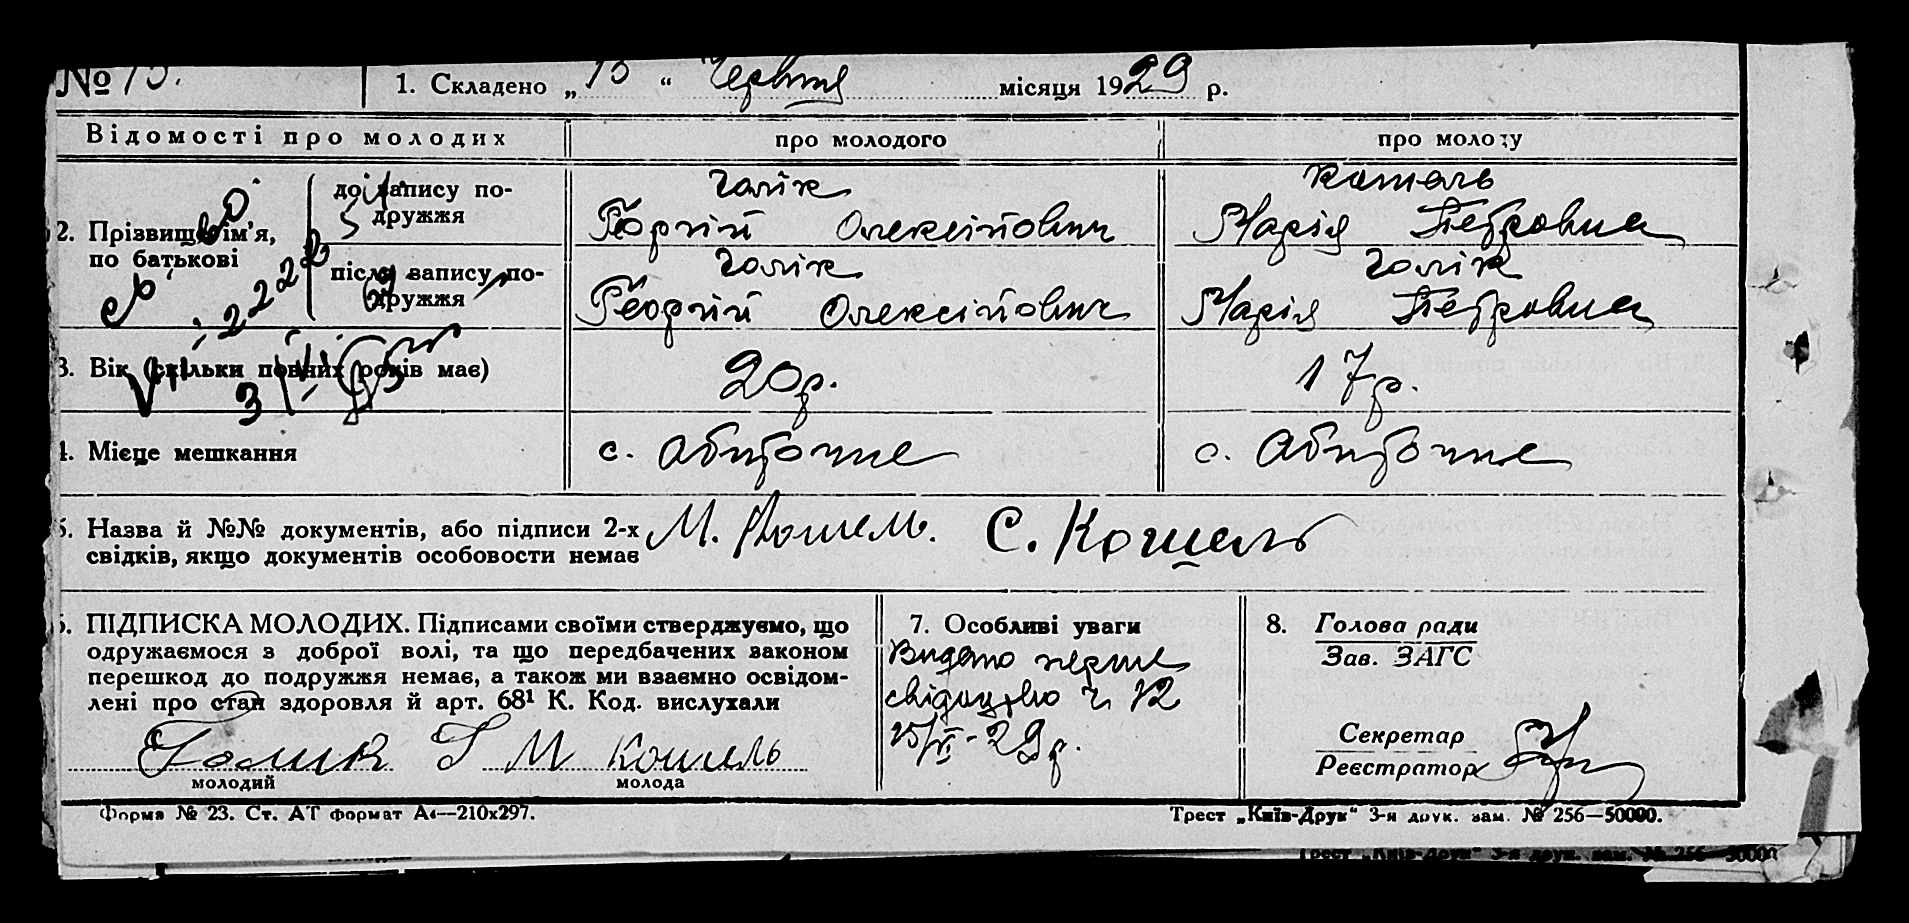 № 15.
1. Складено „ 15 “ Червня місяця 1929 р.
Відомості про молодих
про молодого
про молоду
2. Прізвище, ім’я,
по батькові
до запису по-
дружжя
Голік
Георгій Олексійович
Кошель
Марія Петровна
після запису по-
дружжя
Голік
Георгій Олексійович
Голік
Марія Петровна
3. Вік (скільки повних років має)
20р.
17р.
4. Місце мешкання
с.
с.
5. Назва й №№ документів, або підписи 2-х
свідків, якщо документів особовости немає
М. Кошель. С. Кошель
6. ПІДПИСКА МОЛОДИХ. Підписами своїми стверджуємо, що
одружаємося з доброї волі, та що передбачених законом
перешкод до подружжя немає, а також ми взаємно освідом-
лені про стан здоровля й арт. 68¹ К. Код. вислухали
Голик Г М Кошель
молодий
молода
7. Особливі уваги
Видано перше
свідоцтво ч 12
15/VI-29р.
8. Голова ради
Зав. ЗАГС
Секретар
Реєстратор
Форма № 23. Ст. АТ формат А4—210x297.
Трест „Київ-Друк“ 3-я друк. зам. № 256—50000.
Трест „Київ-Друк“ 3-я друк. зам. № 256—50000